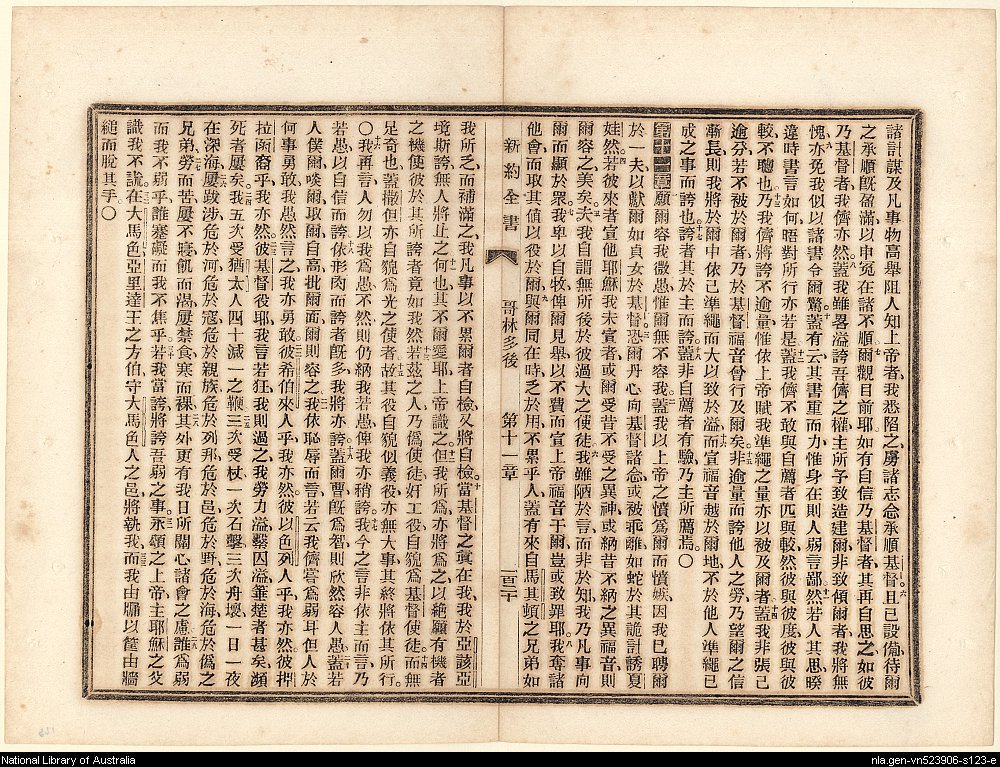 諸計謀及凡事物高舉阻人知上帝者我悉陷之虜諸志念承順基督且已設備待爾
之承順旣盈滿以申冤在諸不順爾觀目前耶如有自信乃基督者其再自思之如彼
乃基督者我儕亦然蓋我雖畧溢誇吾儕之權主所予致造建爾非致傾爾者我將無
愧亦免我似以諸書令爾驚蓋有云其書重而力惟身在則人弱言鄙然若人其思睽
違時書言如何晤對所行亦若是蓋我儕不敢與自薦者匹與較然彼與彼度彼與彼
較不聰也乃我儕將誇不逾量惟依上帝賦我準繩之量亦以被及爾者蓋我非張己
逾分若不被於爾者乃於基督福音曾行及爾矣非逾量而誇他人之勞乃望爾之信
漸長則我將於爾中依己準繩而大以致於溢而宣福音越於爾地不於他人準繩已
成之事而誇也誇者其於主而誇蓋非自薦者有驗乃主所薦焉〇
願爾容我微愚惟爾無不容我蓋我以上帝之憤爲爾而憤嫉因我已聘爾
於一夫以獻爾如貞女於基督恐爾丹心向基督諸念或被乖離如蛇於其詭計誘夏
娃然若彼來者宣他耶穌我未宣者或爾受昔不受之異神或納昔不納之異福音則
爾容之美矣夫我自謂無所後於彼過大之使徒我雖陋於言而非於知我乃凡事向
爾而顯於衆我卑以自牧俾爾見舉以不費而宣上帝福音于爾豈或致罪耶我奪諸
他會而取其値以役於爾與爾同在時乏於用不累乎人蓋有來自馬其頓之兄弟如
新約全書
哥林多後
第十一章
一百二十
我所乏而補滿之我凡事以不累爾者自檢又將自檢當基督之眞在我我於亞該亞
境斯誇無人將止之何也其不爾愛耶上帝識之但我所爲亦將爲之以絶願有機者
之機使彼於其所誇者竟如我然若茲之人乃僞使徒奸工役自貌爲基督使徒而無
足奇也蓋撒但亦自貌爲光之使者故其役自貌似義役亦無大事其終將依其所行
〇我再言人勿以我爲愚不然則仍納我若愚俾我亦稍誇我今之言非依主而言乃
若愚以自信而誇依形肉而誇者旣多我將亦誇蓋爾曹旣爲智則欣然容人愚蓋若
人僕爾啖爾取爾自高批爾面爾則容之我依恥辱而言若云我儕嘗爲弱耳但人於
何事勇敢我愚然言之我亦勇敢彼希伯來人乎我亦然彼以色列人乎我亦然彼押
拉函裔乎我亦然彼基督役耶我言若狂我則過之我勞力溢繫囚溢箠楚者甚矣瀕
死者屢矣我五次受猶太人四十減一之鞭三次受杖一次石擊三次舟壞一日一夜
在深海屢跋涉危於河危於寇危於親族危於列邦危於邑危於野危於海危於僞之
兄弟勞而苦屢不寢飢而渴屢禁食寒而裸其外更有我日所關心諸會之慮誰爲弱
而我不弱乎誰塞礙而我不焦乎若我當誇將誇吾弱之事永頌之上帝主耶穌之父
識我不謊在大馬色亞里達王之方伯守大馬色人之邑將執我而我由牖以筐由牆
縋而脫其手〇
National Library of Australia
nla.gen-vn523906-s123-e